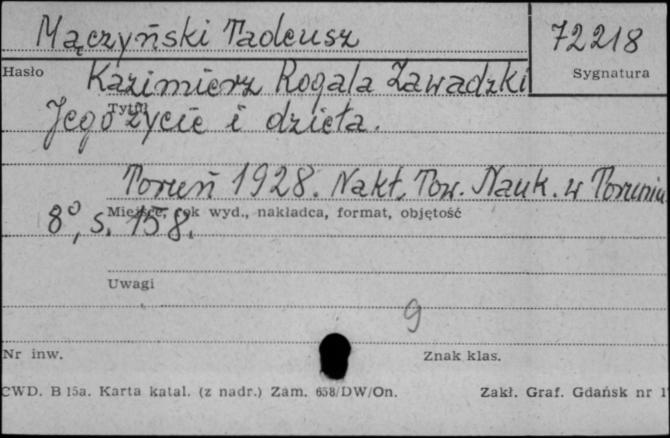 Mączyński Tadeusz
72218
Hasło
Sygnatura
Kazimierz Rogala Zawadzki
Tytuł
Jego życie i dzieła.
Toruń 1928. Nakł. Tow. Nauk. w Toruniu
Miejsce, rok wyd., nakładca, format, objętość
8°, s. 158.
Uwagi
9
Nr inw.
Znak klas.
CWD. B 15a. Karta katal. (z nadr.) Zam. 658/DW/On.
Zakł. Graf. Gdańsk nr 1